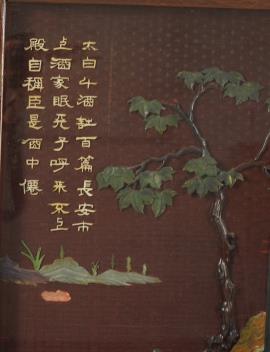 太白斗酒詩百篇長安市
上酒家眠天子呼來不上
殿自稱臣是酒中僊